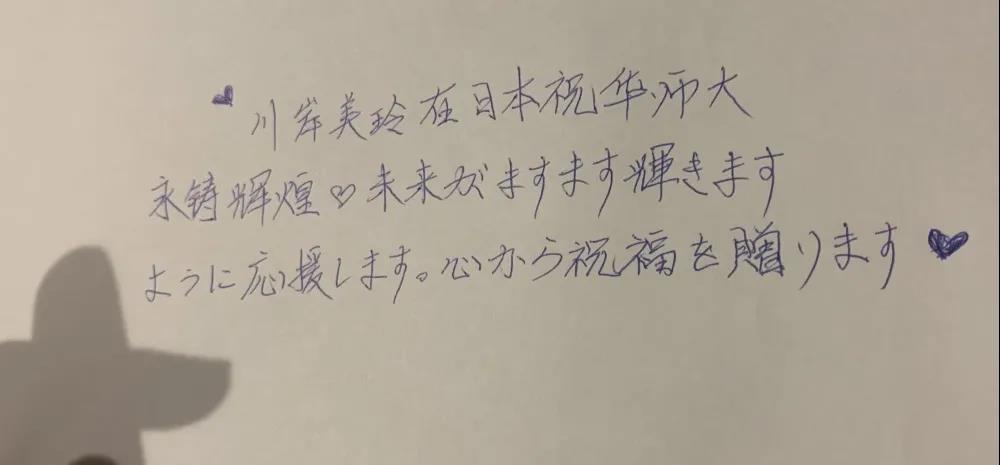 川岸美玲在日本祝华师大
永铸辉煌♡未来がますます輝きます
ように応援します。心から祝福を贈ります